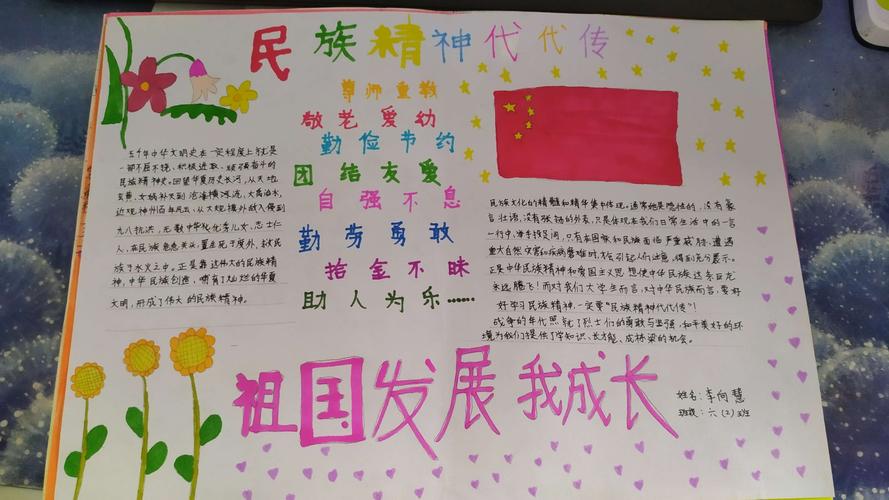 民族精神代代传
尊师重教
敬老爱幼
勤俭节约
团结友爱
自强不息
勤劳勇敢
拾金不昧
助人为乐……
五千年中华文明史在一定程度上就是
一部不屈不挠、积极进取、顽强奋斗的
民族精神史。回望华夏历史长河，从天地
玄黄、女娲补天到沧海横流，大禹治水，
近观神州百年风云，从大规模外敌入侵到
九八抗洪，无数中华优秀儿女、志士仁
人，在民族危急关头，置生死于度外，救民
族于水火之中。正是靠这伟大的民族精
神，中华民族创造，哺育了灿烂的华夏
文明，形成了伟大的民族精神。
民族文化的精髓和精华集中体现。通常她是隐性的，没有豪
言壮语，没有张扬的外表，只是体现在我们日常生活中的一言
一行中，举手投足间，只有在国家和民族面临严重威胁、遭遇
重大自然灾害和疾病磨难时，才会引起人们注意，得到充分展示。
正是中华民族精神和爱国主义思想使中华民族这条巨龙
永远腾飞！而对我们大学生而言，对中华民族而言，要好
好学习民族精神，一定要“民族精神代代传”！
战争的年代照 了烈士们的勇敢与坚强，和平美好的环
境为我们提供了学知识、长才能、成栋梁的机会。
祖国发展我成长
姓名：李向慧
班级：六（2）班